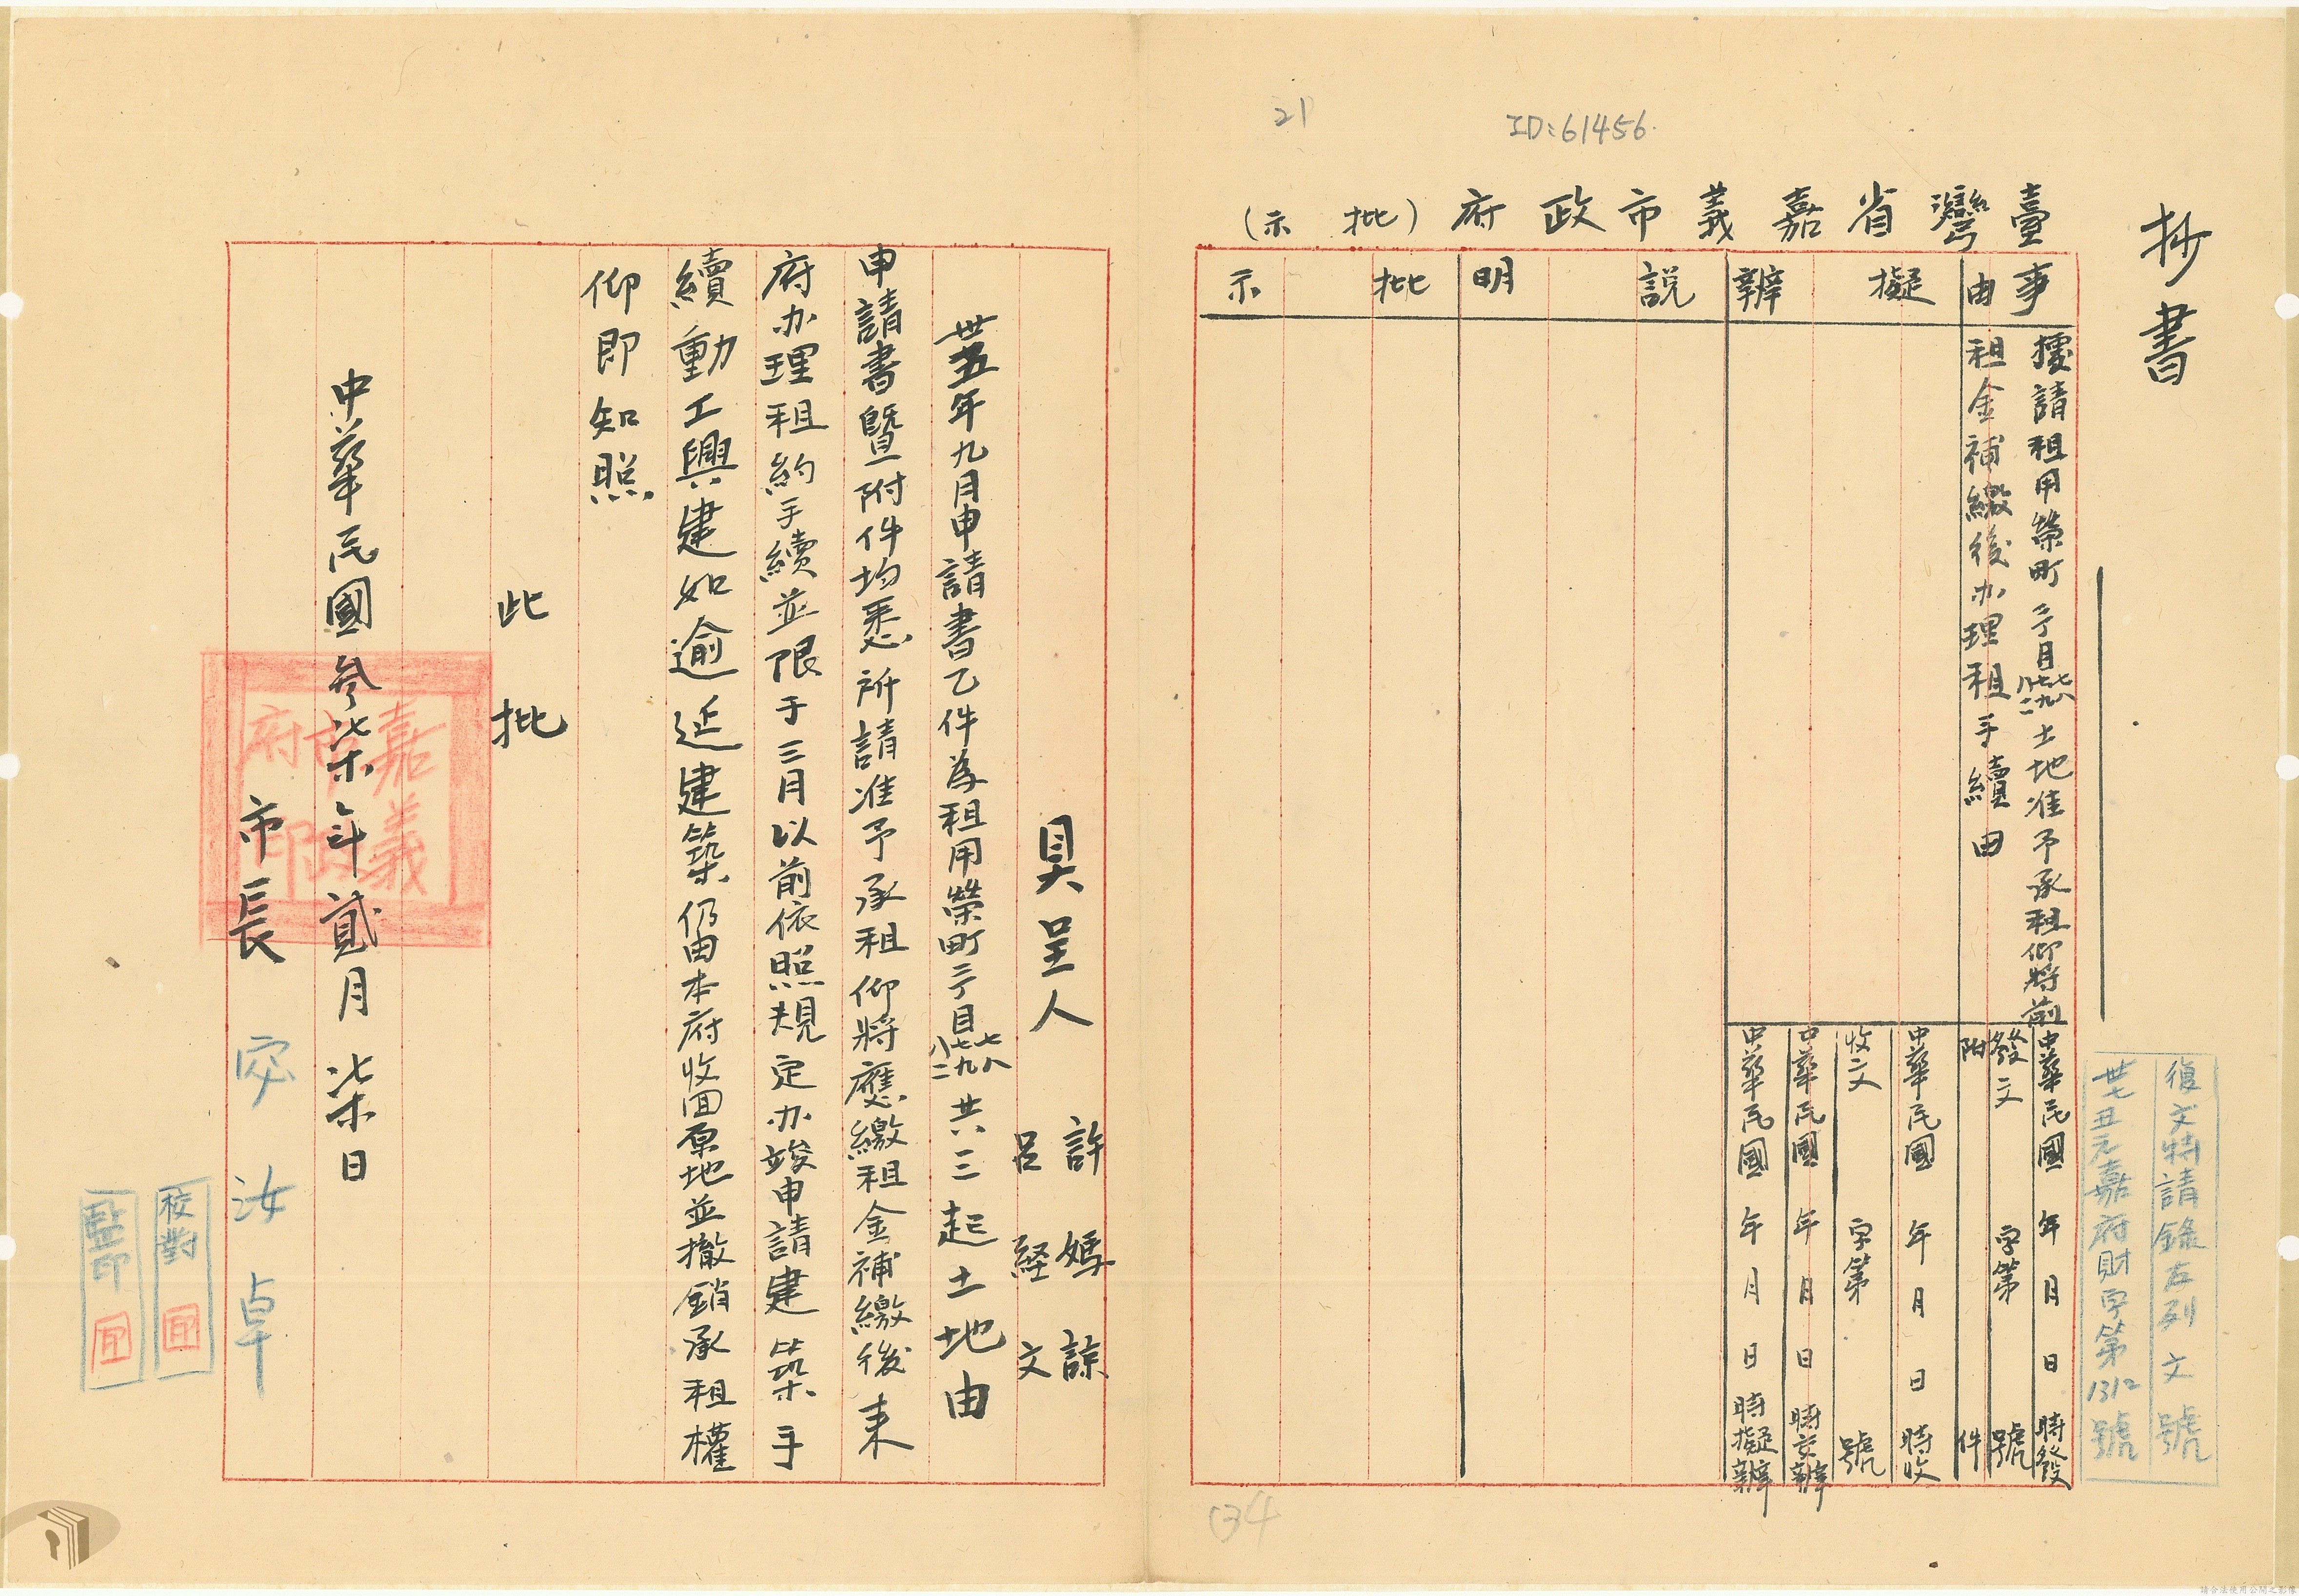 21
ID:61456.
抄書
臺灣省嘉義市政府(批示)
事由
擬辦
説明
批示
據請租用榮町三丁目七八七九八二土地准予承租仰將前
租金補繳後办理租手續由
中華民國 年 月 日 時發
發文 字第 號
附 件
中華民國 年 月 日 時收
收文 字第 號
中華民國 年 月 日 時交辦
中華民國 年 月 日 時擬辦
復文特請錄左列文號
卅七丑元嘉府財字第1312號
具呈人 許媽諒
呂経文
卅五年九月申請書乙件為租用榮町三丁目七八七九八二共三起土地由
申請書暨附件均悉所請准予承租仰將應繳租金補繳後来
府办理租約手續並限于三月以前依照規定办竣申請建築手
續動工興建如逾延建築仍由本府收回原地並撤銷承租權
仰即知照
此批
中華民國參柒年貳月柒日
嘉義市政府印
市長 宓汝卓
校對
監印
134
請合法使用公開之影像